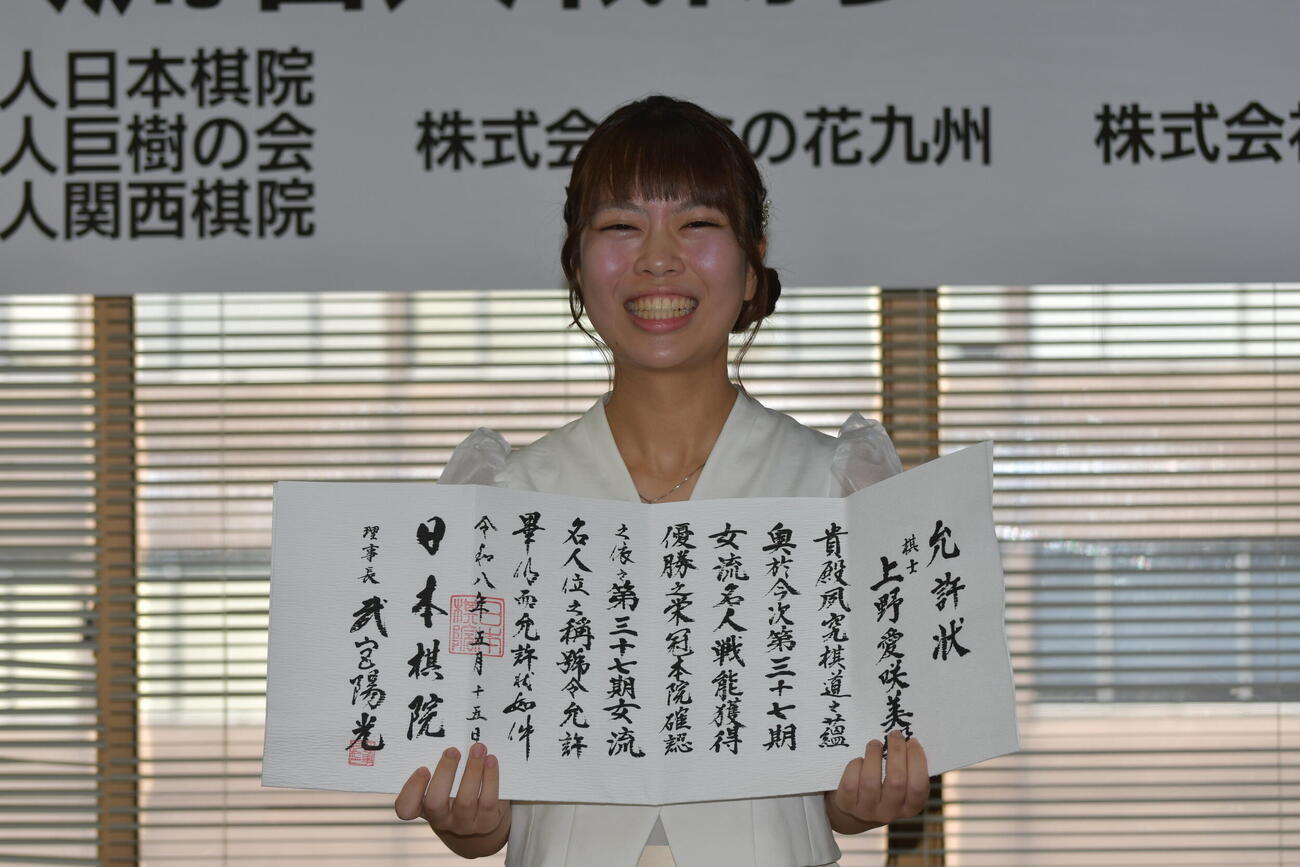 人日本棋院
人巨樹の会
人関西棋院
株式会
の花九州
株式会
允許状
棋士 上野愛咲美
貴殿夙究棋道之蘊
奥於今次第三十七期
女流名人戦能獲得
優勝之栄冠本院確認
之依之第三十七期女流
名人位之稱號令允許
畢仍而允許状如件
令和八年五月十五日
日本棋院
理事長 武宮陽光